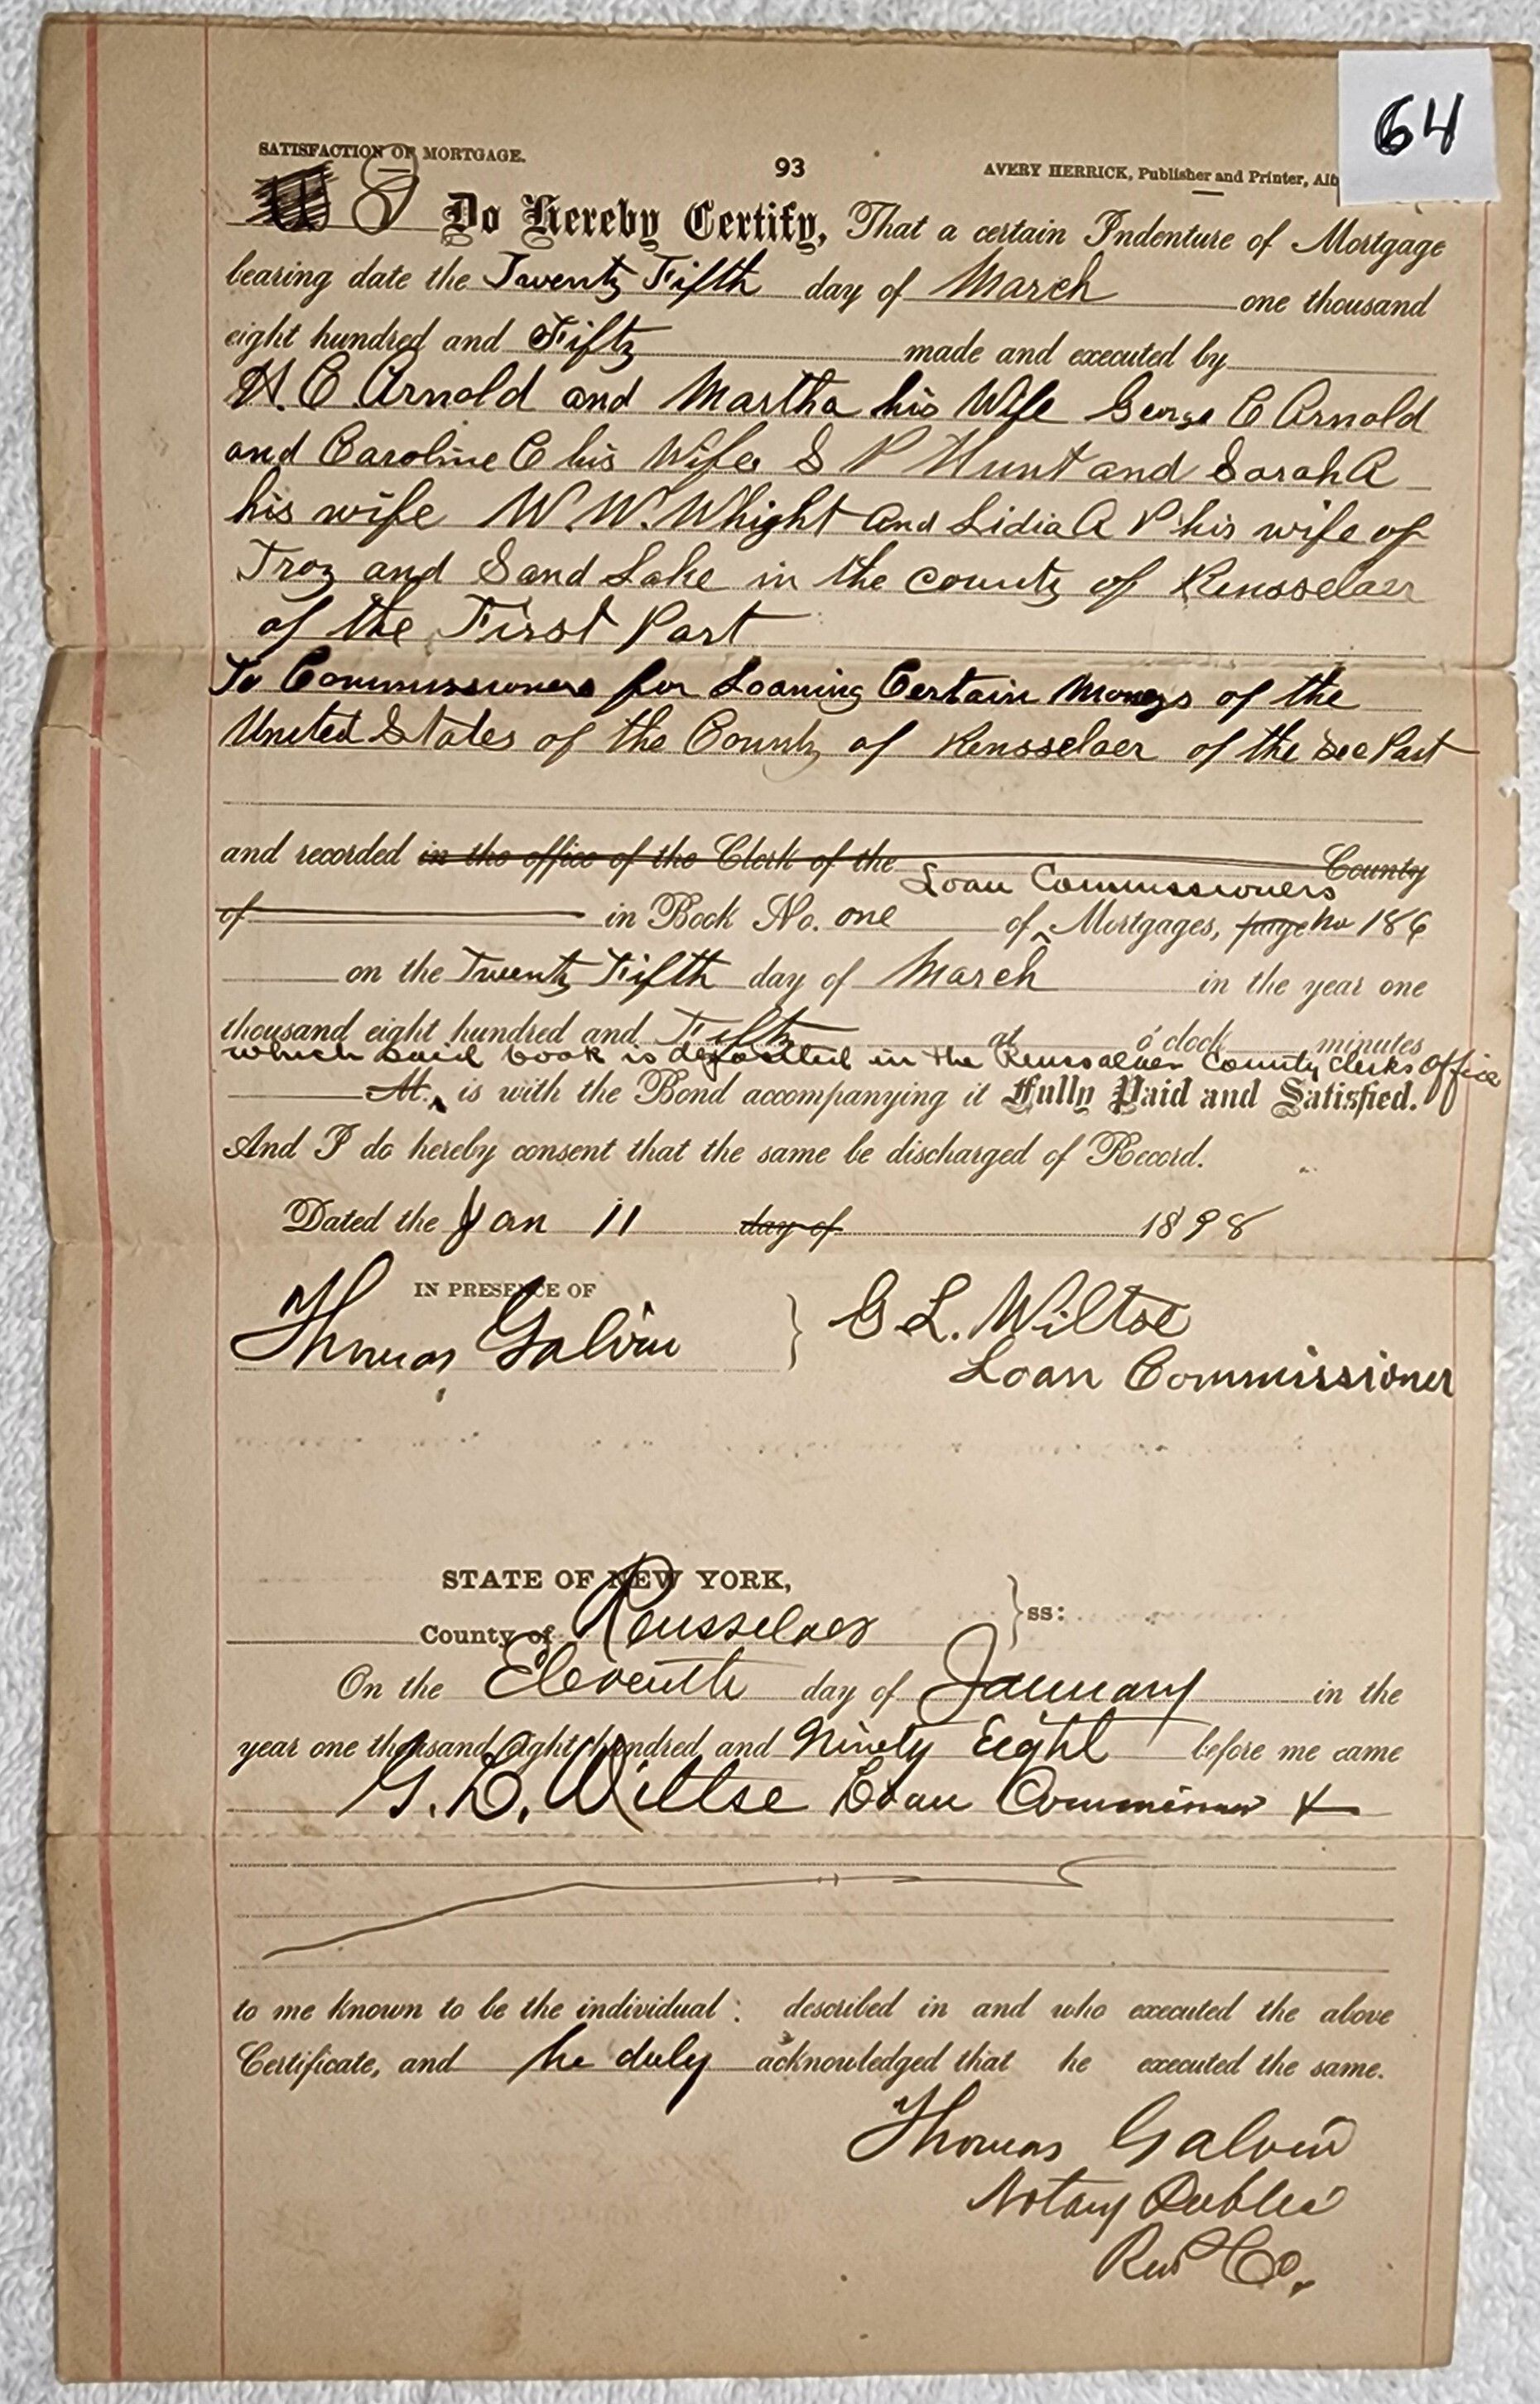 64
SATISFACTION OF MORTGAGE.
93
AVERY HERRICK, Publisher and Printer, Alb
I Do Hereby Certify, That a certain Indenture of Mortgage
bearing date the Twenty Fifth day of March one thousand
eight hundred and Fifty made and executed by
H. C. Arnold and Martha his Wife George C Arnold
and Caroline C his Wife S P Hunt and Sarah A
his wife W. W. Whight and Lidia A P his wife of
Troy and Sand Lake in the county of Rensselaer
of the First Part
To Commissioners for Loaning Certain Moneys of the
United States of the County of Rensselaer of the Sec Part
and recorded in the office of the Clerk of the County
Loan Commissioners
of in Book No. one of Mortgages, page No 186
on the Twenty Fifth day of March in the year one
thousand eight hundred and Fifty at o'clock minutes
which said book is deposited in the Rensselaer County Clerks Office
M. is with the Bond accompanying it Fully Paid and Satisfied.
And I do hereby consent that the same be discharged of Record.
Dated the Jan 11 day of 1898
IN PRESENCE OF
Thomas Galvin
G. L. Wiltse
Loan Commissioner
STATE OF NEW YORK,
County of Rensselaer ss:
On the Eleventh day of January in the
year one thousand eight hundred and Ninety Eight before me came
G. L. Wiltse Loan Commissioner
to me known to be the individual described in and who executed the above
Certificate, and he duly acknowledged that he executed the same.
Thomas Galvin
Notary Public
Ren Co.